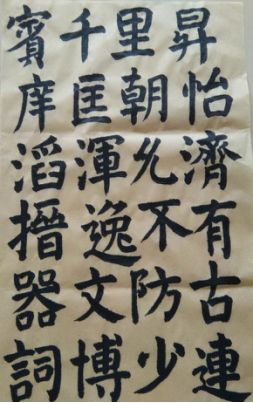 昇怡濟有古連
里朝允不防少
千匡渾逸文博
賓庠滔搢器詞